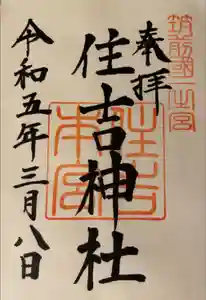 筑前國一之宮
奉拝
住吉神社
住吉本宮
令和五年三月八日